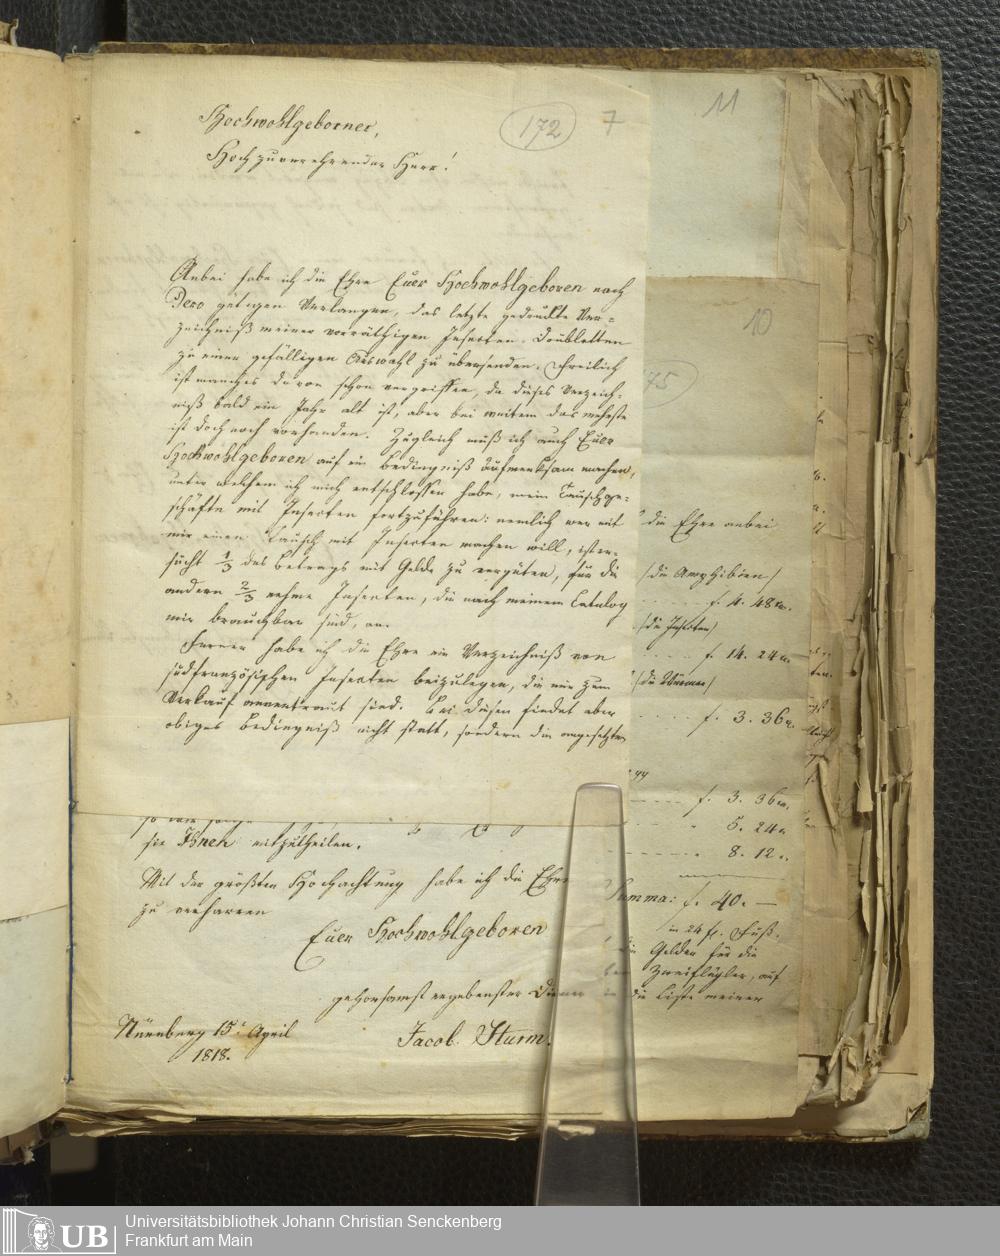 172 7
11
Hochwohlgeborner,
Hochzuverehrender Herr!
10
Anbei habe ich die Ehre Euer Hochwohlgeboren nach
Dero gütigen Verlangen, das letzte gedruckte Ver=
zeichniß meiner vorräthigen Insecten-Doubletten
zu einer gefälligen Auswahl zu übersenden. Freilich
ist manches davon schon vergriffen, da dieses Verzeich=
niß bald ein Jahr alt ist, aber bei weitem das mehrste
ist doch noch vorhanden. Zugleich muß ich auch Euer
Hochwohlgeboren auf ein Bedingniß aufmerksam machen,
unter welchem ich mich entschlossen habe, mein Tauschge=
schäfte mit Insecten fortzuführen: nemlich wer mit
mir einen Tausch mit Insecten machen will, ist er=
sucht 1/3 des Betrags mit Gelde zu vergüten, für die
andern 2/3 nehme Insecten, die nach meinem Catalog
mir brauchbar sind, an.
Ferner habe ich die Ehre ein Verzeichniß von
südfranzösischen Insecten beizulegen, die mir zum
Verkauf anvertraut sind. Bei diesen findet aber
obiges Bedingniß nicht statt, sondern die angesetzten
sie Ihnen mitzutheilen.
Mit der größten Hochachtung habe ich die Ehre
zu verharren
Euer Hochwohlgeboren
gehorsamst ergebenster Diener
Nürnberg 15t April
1818.
Jacob Sturm.
die Ehre anbei
(die Amphibien)
f. 4. 48 kr.
(die Insecten)
f. 14. 24 kr.
(die Würmer)
f. 3. 36 kr.
f. 3. 36 kr.
" 5. 24 "
" 8. 12 "
Summa: f. 40. —
in 24 fl. Fuß.
die Gelder für die
Zweiflügler, auf
in die Liste meiner
Universitätsbibliothek Johann Christian Senckenberg
UB Frankfurt am Main